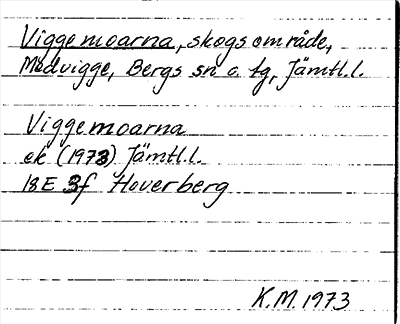 Viggemoarna, skogsområde,
Medvigge, Bergs sn o. tg, Jämtl.l.
Viggemoarna
ek (1973) Jämtl.l.
18E 3f Hoverberg
K.M. 1973